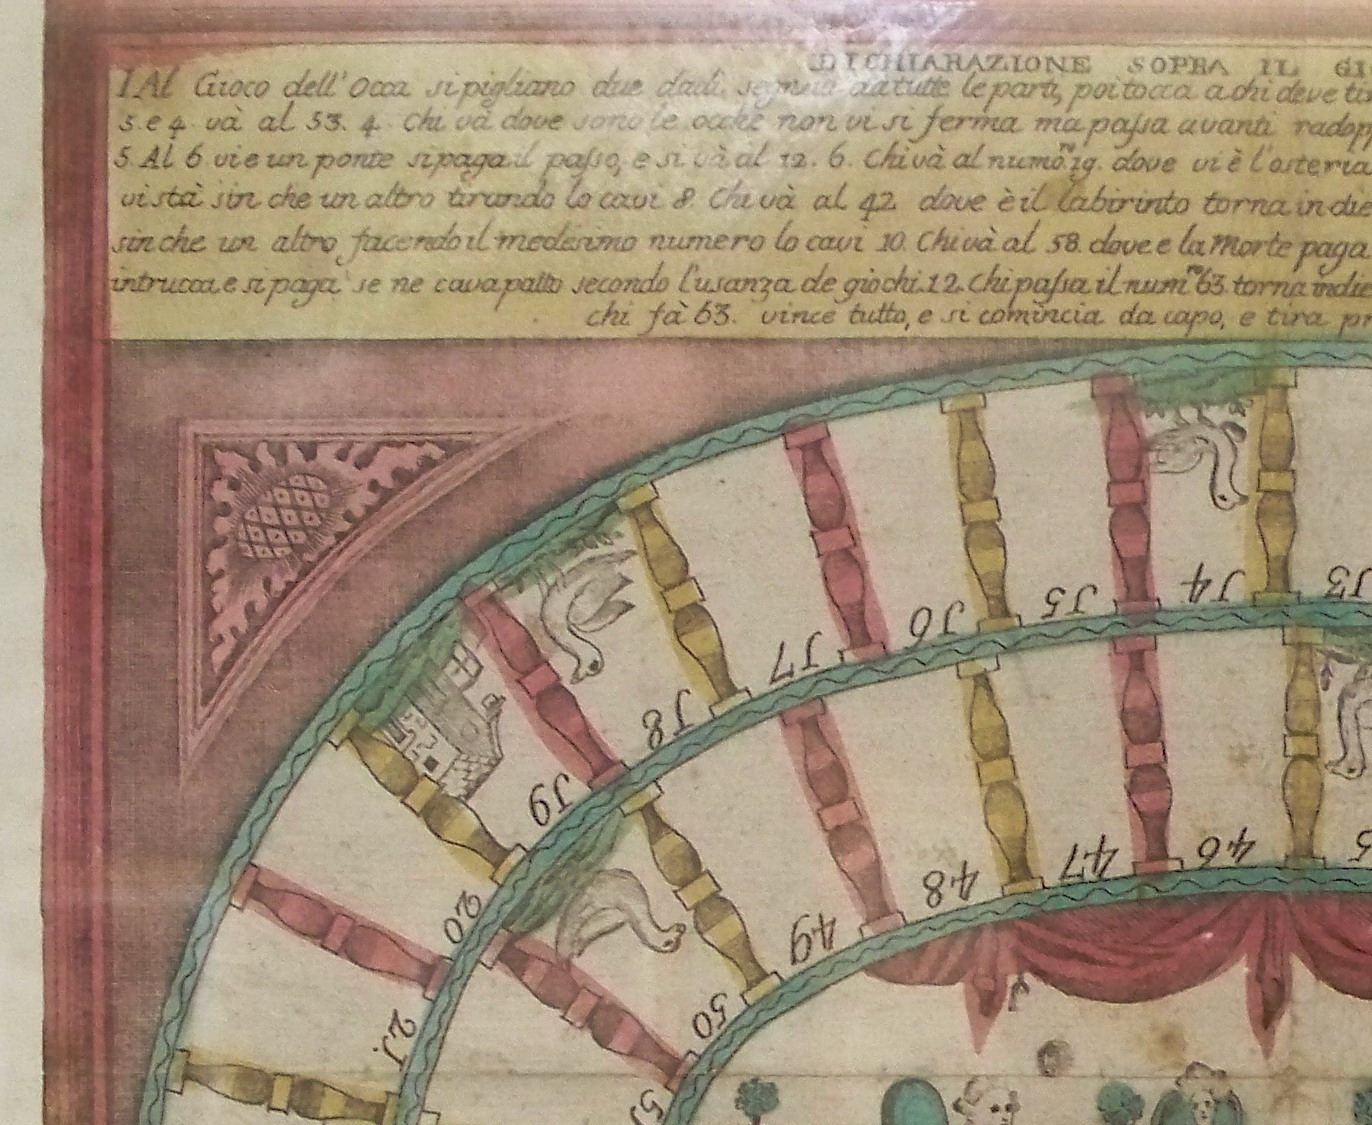 DICHIARAZIONE SOPRA IL GI
I. Al Gioco dell' Occa si pigliano due dadi, segnati da tutte le parti, poi tocca a chi deve tir
5. e 4. và al 53. 4. Chi và dove sono le ocche non vi si ferma ma paſsa avanti radopp
5. Al 6. vi e un ponte si paga il paſso, e si và al 12. 6. Chi và al numo.ro 19. dove vi è l'osteria
vi stà sin che un altro tirando lo cavi 8. Chi và al 42 dove è il labirinto torna in die
sin che un altro facendo il medesimo numero lo cavi 10. Chi và al 58. dove e la Morte paga
intrucca e si paga se ne cava patto secondo l'usanza de giochi. 12. Chi paſsa il num.ro 63. torna indie
chi fà 63. vince tutto, e si comincia da capo, e tira pr
13
14
15
16
17
18
19
20
21.
46
47
48
49
50
51